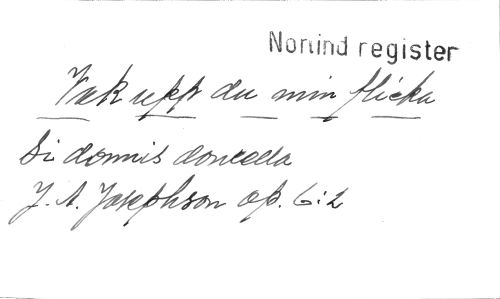 Norlind register
Vak upp du min flicka
Si dormis doncella
J. A. Josephson op. 6:2